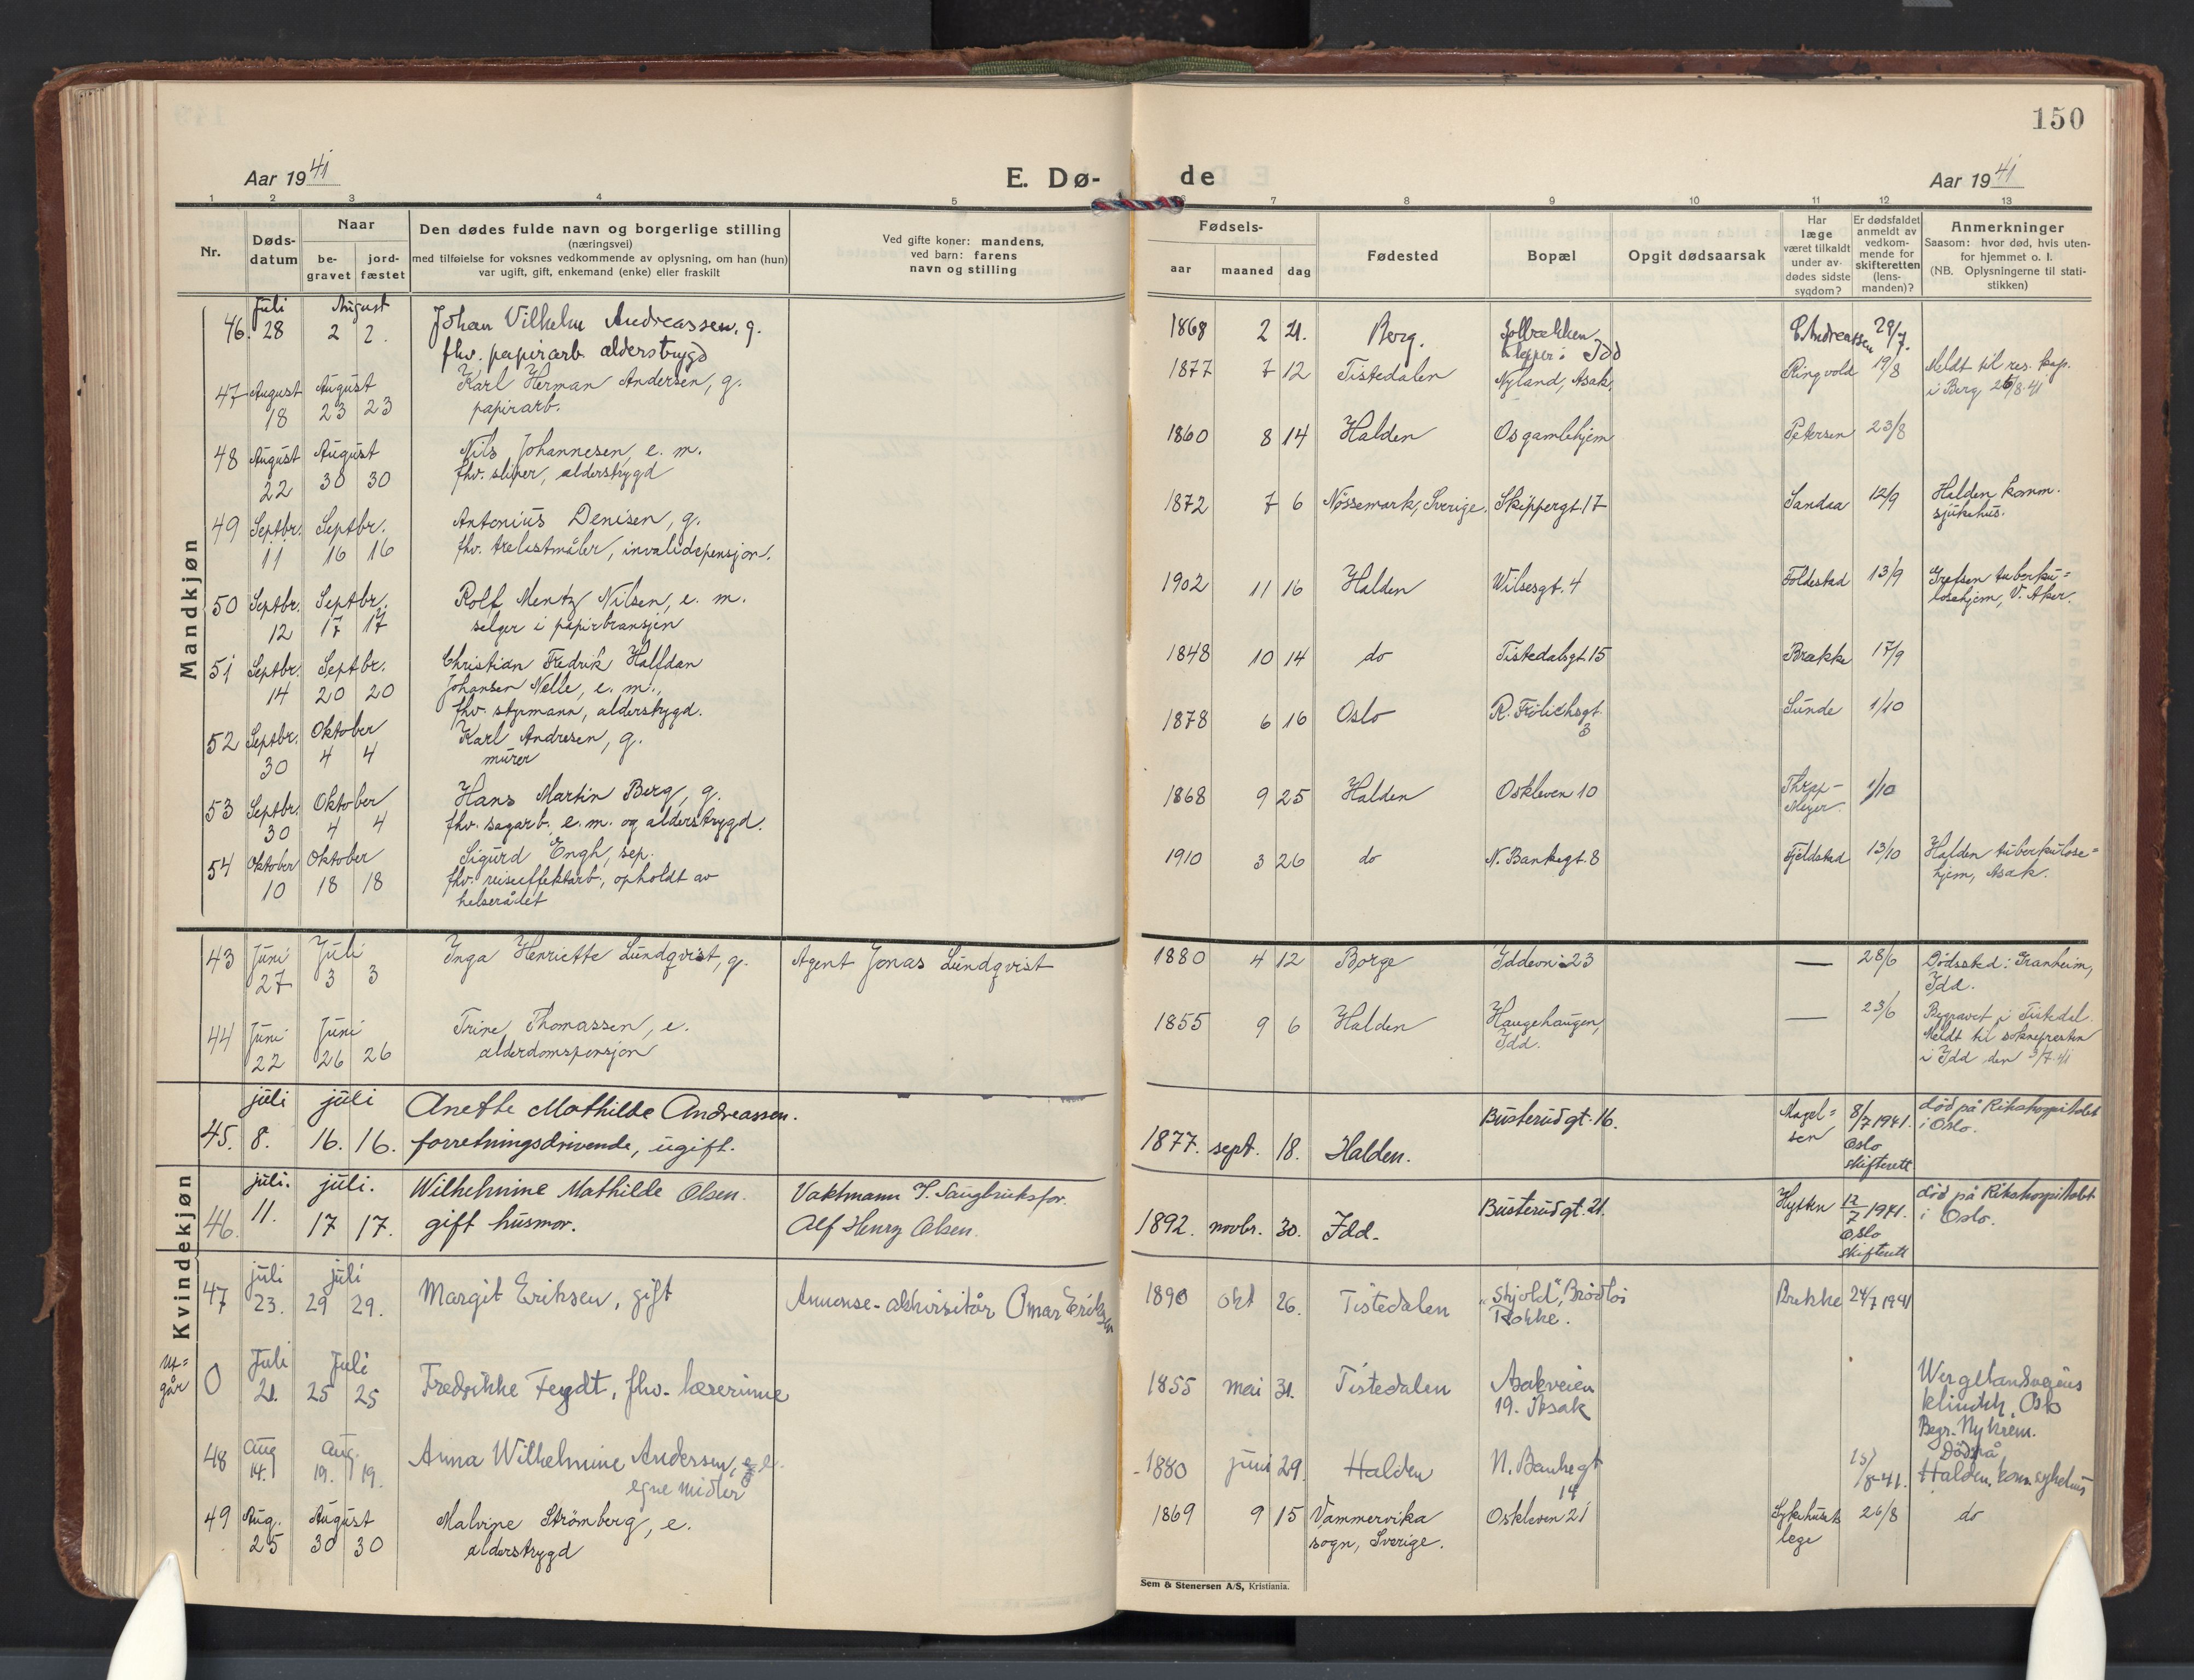 150
Aar 1941
E. Dø-
de
Aar 1941
1 2 3 4 5 7 8 9 10 11 12 13
Nr.
Døds-
datum
Naar
be-
gravet
jord-
fæstet
Den dødes fulde navn og borgerlige stilling
(næringsvei)
med tilføielse for voksnes vedkommende av oplysning, om han (hun)
var ugift, gift, enkemand (enke) eller fraskilt
Ved gifte koner: mandens,
ved barn: farens
navn og stilling
Fødsels-
aar
maaned
dag
Fødested
Bopæl
Opgit dødsaarsak
Har
læge
været tilkaldt
under av-
dødes sidste
sygdom?
Er dødsfaldet
anmeldt av
vedkom-
mende for
skifteretten
(lens-
manden)?
Anmerkninger
Saasom: hvor død, hvis uten-
for hjemmet o. l.
(NB. Oplysningerne til stati-
stikken)
Mandkjøn
Juli August
46. 28 2 2. Johan Vilhelm Andreassen, g.
fhv. papirarb. alderstrygd
1868 2 21. Berg. Idd Andreassen 29/7.
47 August August Karl Herman Andersen, g.
18 23 23 papirarb.
1877 7 12 Tistedalen Nyland, Asak, Ringvold 19/8 Meldt til res. kap.
i Berg 26/8-41
48 August August Nils Johannesen, e. m.
22 30 30 fhv. sliper, alderstrygd
1860 8 14 Halden Os gamlehjem Petersen 23/8
49 Septbr. Septbr. Antonius Denisen, g.
11 16 16 fhv. trelastmåler, invalidepensjon.
1872 7 6 Nössemark, Sverige. Skippergt. 17 Sandaa 12/9 Halden komm.
sjukehus.
50 Septbr. Septbr. Rolf Mentz Nilsen, e. m.
12 17 17 selger i papirbransjen
1902 11 16 Halden Wilsesgt. 4 Foldestad 13/9 Grefsen tuberku=
losehjem, V. Aker.
51 Septbr. Septbr. Christian Fredrik Halfdan
14 20 20 Johansen Nelle, e. m.,
fhv. styrmann, alderstrygd.
1848 10 14 do Tistedalsgt. 15 Brække 17/9
52 Septbr. Oktober Karl Andresen, g.
30 4 4 murer
1878 6 16 Oslo R. Frölichsgt.
3
Sunde 1/10
53 Septbr. Oktober Hans Martin Berg, g.
30 4 4 fhv. sagarb. e. m. og alderstrygd.
1868 9 25 Halden Oskleven 10 Meyer. 1/10
54 Oktober Oktober Sigurd Engh, sep.
10 18 18 fhv. reiseeffektarb., opholdt av
helserådet
1910 3 26 do N. Bankegt. 8 Fjeldstad 13/10 Halden tuberkulose=
hjem, Asak.
Kvindekjøn
43 Juni Juli Inga Henriette Lundqvist, g. Agent Jonas Lundqvist
27 3 3
1880 4 12 Borge Iddevn. 23 — 28/6 Dödssted: Granheim,
Idd.
44 Juni Juni Trine Thomassen, e.
22 26 26 alderdomspensjon
1855 9 6 Halden Haugehaugen,
Idd.
— 23/6 Begravet i Tistedal.
Meldt til soknepresten
i Idd den 3/7-41
juli juli Anette Mathilde Andreassen.
45. 8. 16. 16. forretningsdrivende, ugift.
1877. sept. 18. Halden. Busterudgt. 16. Magel=
sen
8/7 1941.
Oslo
skifterett
död på Rikshospitalet
i Oslo.
juli. juli. Wilhelmine Mathilde Olsen. Vaktmann
46. 11. 17 17. gift husmor. Alf Henry Olsen.
1892. novbr. 30. Idd. Busterudgt. 21. Hytten 12/7 1941.
Oslo
skifterett
död på Rikshospitalet
i Oslo.
juli juli
47 23. 29 29. Margit Eriksen, gift Annonse-akkvisitör Omar Eriksen
1890 okt 26. Tistedalen "Skjold",
Rokke.
Brekke 24/7 1941
ut=
går
Juli Juli
0 21. 25 25 Fredrikke Feydt, fhv. lærerinne
1855 mai 31. Tistedalen Asakveien
19. Asak
Wergelandsveiens
klinikk, Oslo
Begr. Ny krem.
48 aug aug. Anna Wilhelmine Andersen, e.
14. 19. 19. egne midler
1880 juni 29. Halden N. Bankegt
14
15/8-41. Död på
Halden. kom. sykehus
49 Aug. August Malvine Strömberg, e.
25 30 30 alderstrygd
1869 9 15 Vammervika
sogn, Sverige.
Oskleven 21 Sykehusets
lege
26/8 do
Sem & Stenersen A/S, Kristiania.